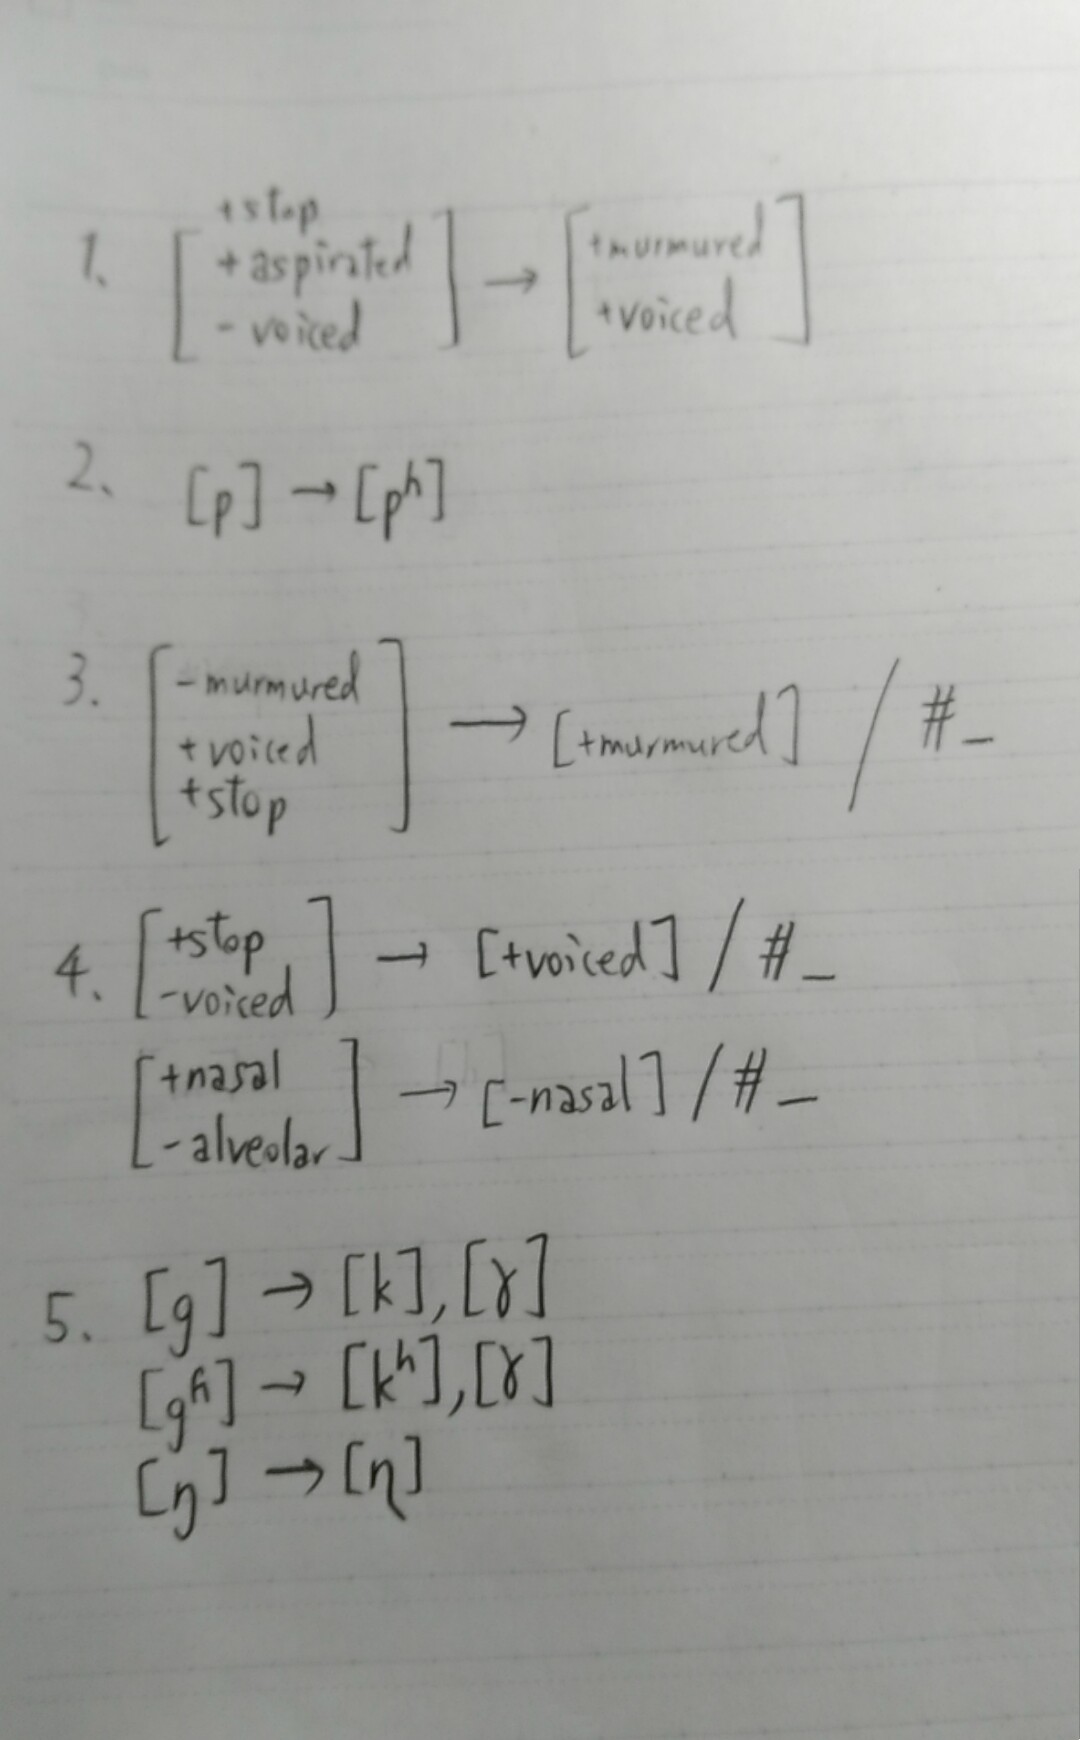 1. [+stop +aspirated -voiced] → [+murmured +voiced]
2. [p] → [pʰ]
3. [-murmured +voiced +stop] → [+murmured] / #_
4. [+stop -voiced] → [+voiced] / #_
[+nasal -alveolar] → [-nasal] / #_
5. [g] → [k], [ɣ]
[gʱ] → [kʰ], [ɣ]
[ŋ] → [η]